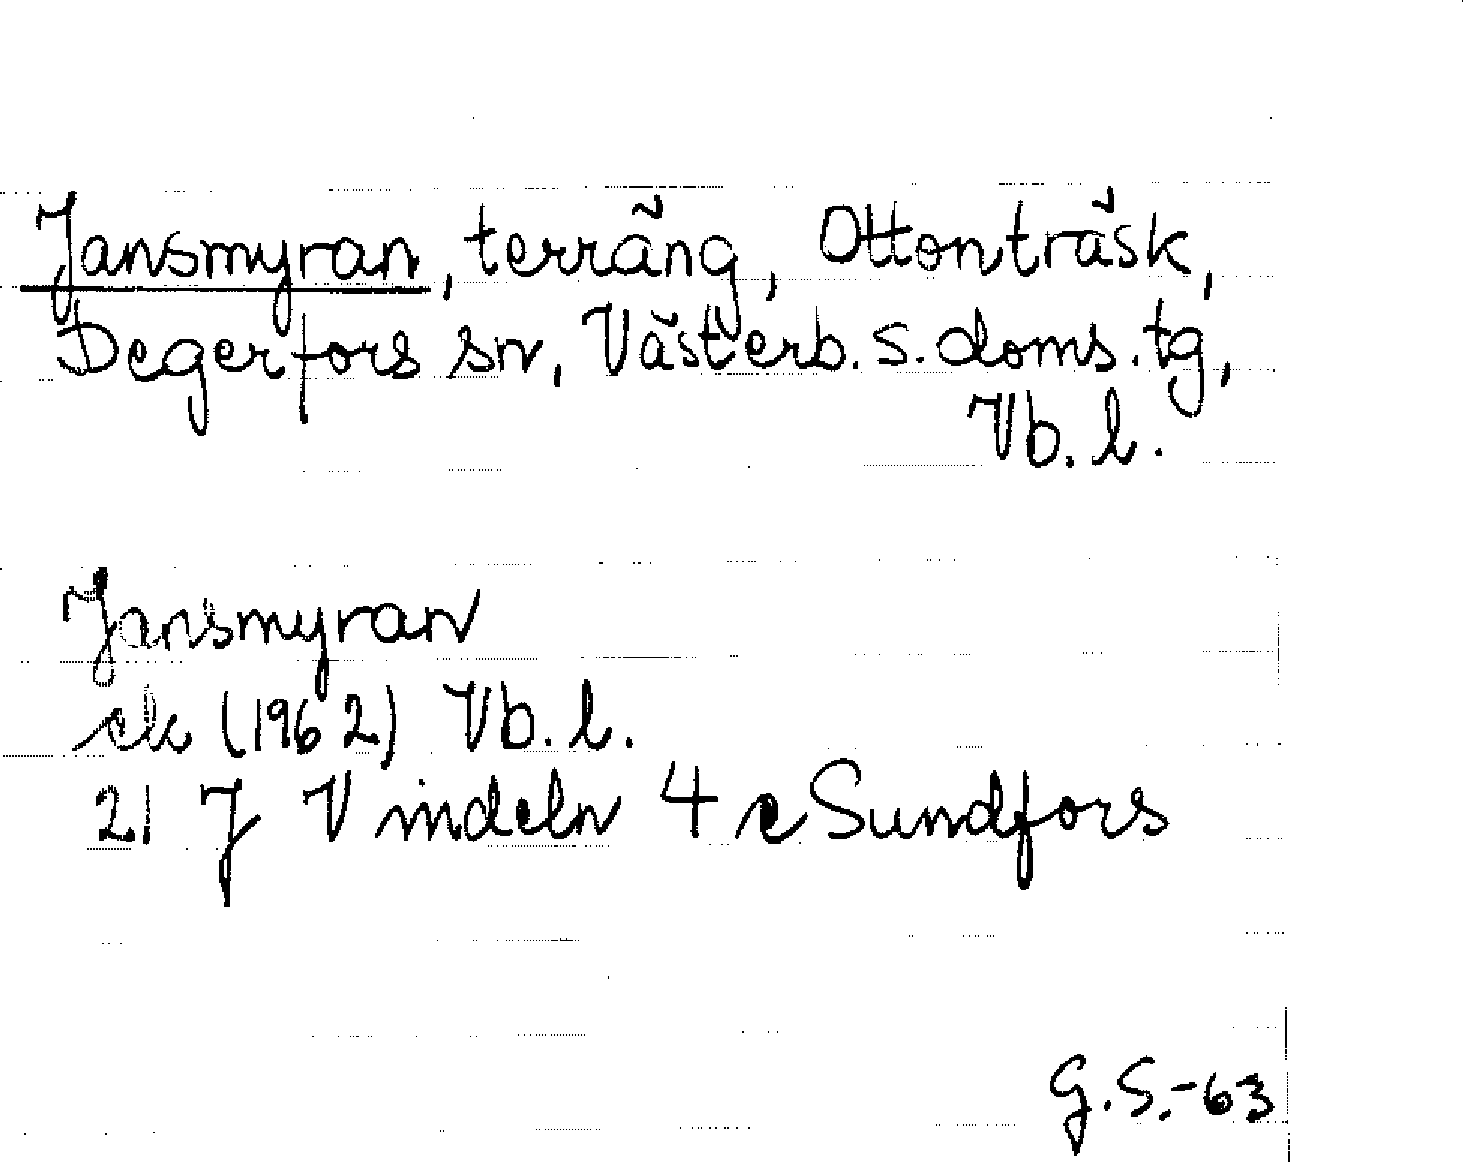 Jansmyran, terräng, Ottonträsk,
Degerfors sn, Västerb. s. doms. tg,
Vb. l.
Jansmyran
ek (1962) Vb. l.
21 J Vindeln 4 e Sundfors
G.S.-63